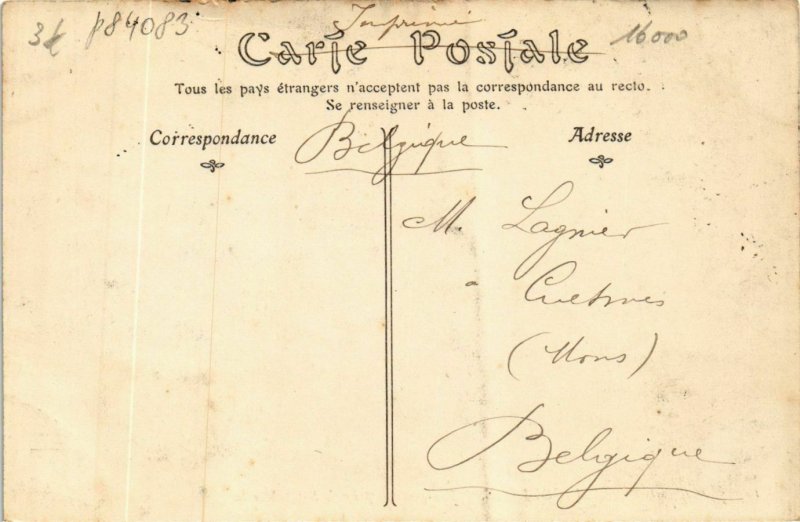 3€ p84083
Imprimé
16000
Carte Postale
Tous les pays étrangers n'acceptent pas la correspondance au recto.
Se renseigner à la poste.
Correspondance
Adresse
Belgique
M. Lagnier
à Cuesmes
(Mons)
Belgique